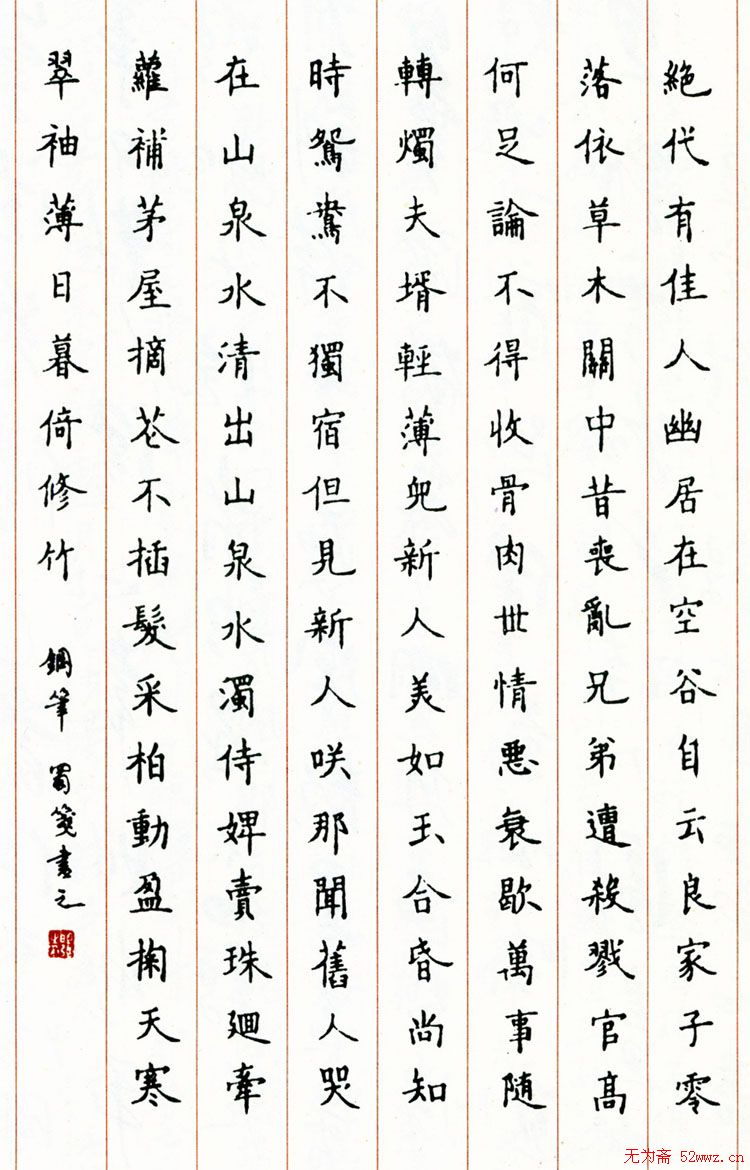 絕代有佳人幽居在空谷自云良家子零
落依草木關中昔喪亂兄弟遭殺戮官高
何足論不得收骨肉世情惡衰歇萬事隨
轉燭夫壻輕薄兒新人美如玉合昏尚知
時鴛鴦不獨宿但見新人咲那聞舊人哭
在山泉水清出山泉水濁侍婢賣珠迴牽
蘿補茅屋摘花不插髮采柏動盈掬天寒
翠袖薄日暮倚修竹
鋼筆 蜀箋書之
无为斋 52wwz.cn